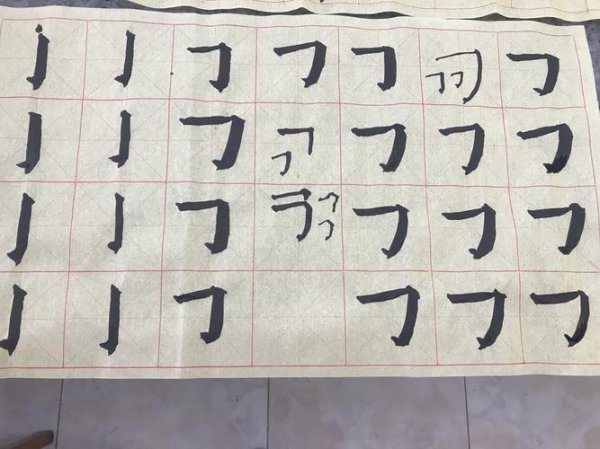 亅 亅 𠃌 𠃌 𠃌 𠃌 𠃌 𠃌 𠃌
亅 亅 𠃌 𠃌 𠃌 𠃌 𠃌 𠃌
亅 亅 𠃌 𠃌 𠃌 𠃌 𠃌 𠃌
亅 亅 𠃌 𠃌 𠃌 𠃌